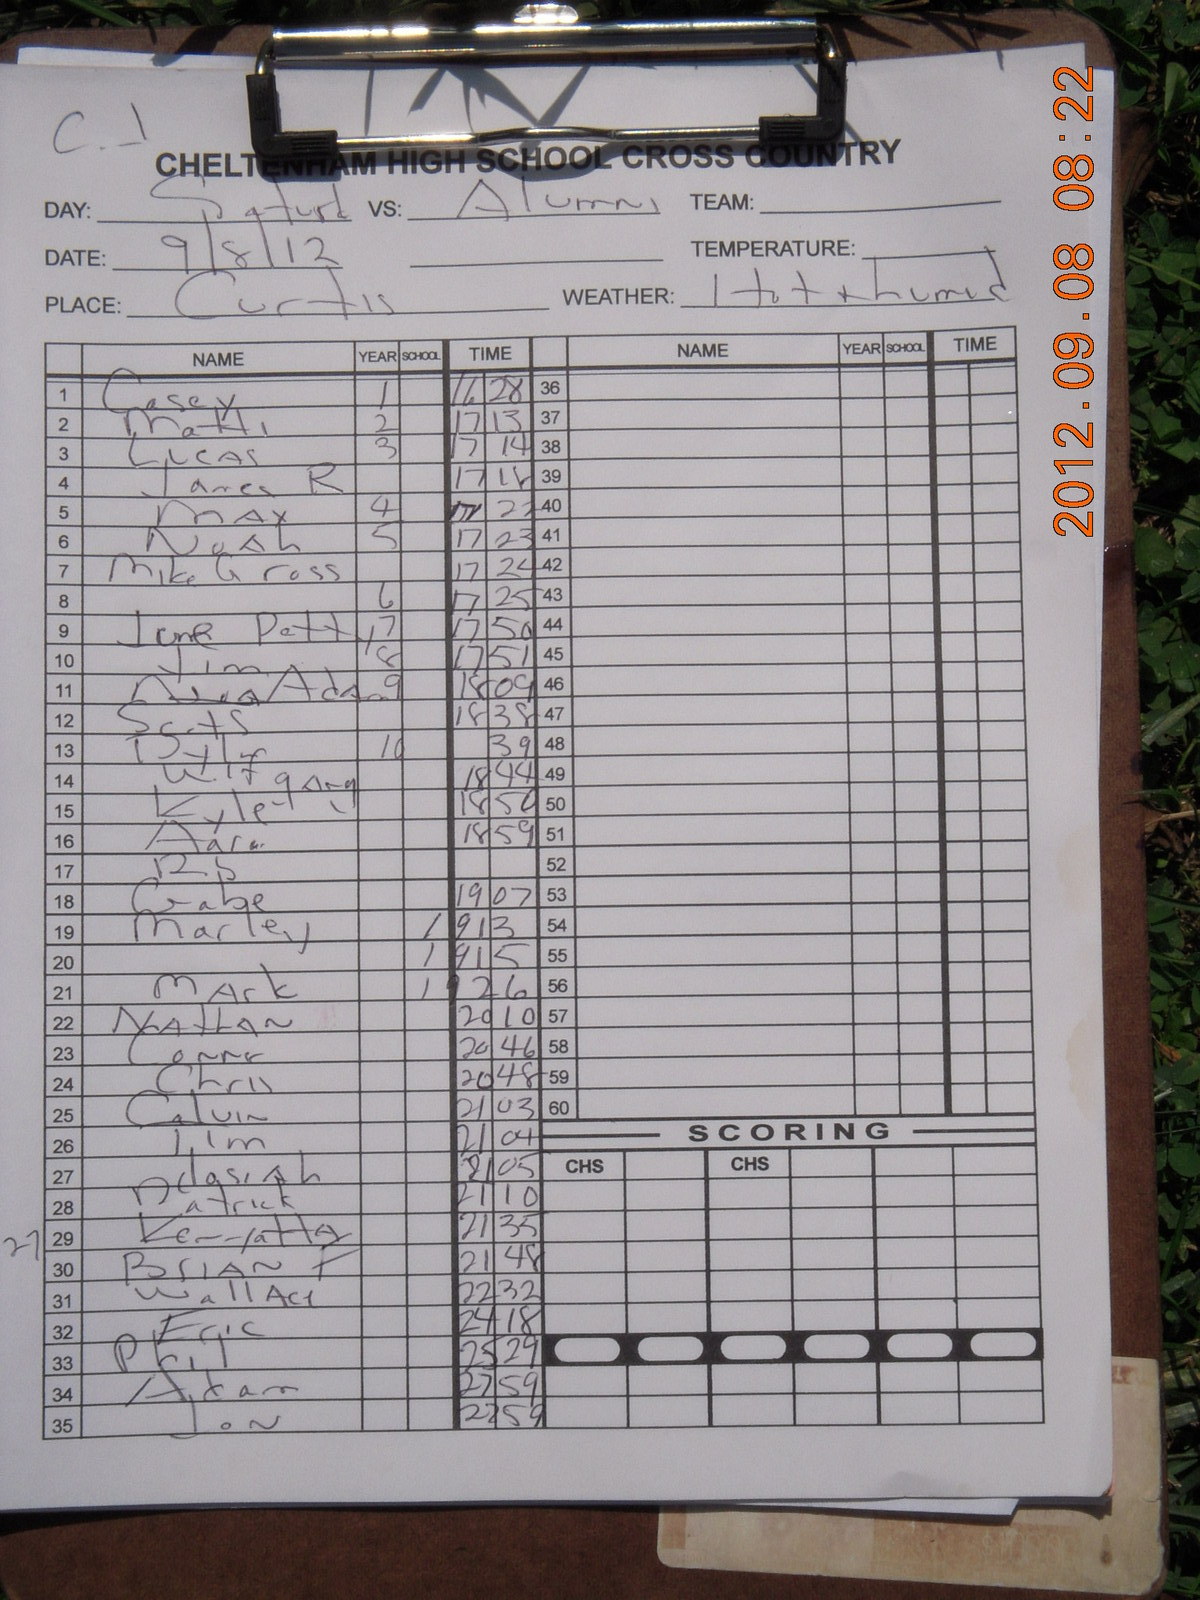 C.J
CHELTENHAM HIGH SCHOOL CROSS COUNTRY
DAY: Saturd VS: Alumni TEAM:
DATE: 9/8/12 TEMPERATURE:
PLACE: Curtis WEATHER: Hot + humid
NAME YEAR SCHOOL TIME NAME YEAR SCHOOL TIME
1 Casey 1 16 28 36
2 2 17 13 37
3 Lucas 3 17 14 38
4 James R 17 18 39
5 Max 4 17 22 40
6 Noah 5 17 23 41
7 Mike Gross 17 24 42
8 6 17 25 43
9 7 17 50 44
10 Jim 8 17 51 45
11 9 18 09 46
12 18 38 47
13 10 39 48
14 Wolfgang 18 44 49
15 Kyle 18 50 50
16 18 59 51
17 52
18 Gabe 19 07 53
19 Marley 19 13 54
20 19 15 55
21 Mark 19 26 56
22 Nathan 20 10 57
23 20 46 58
24 Chris 20 48 59
25 Calvin 21 03 60
26 Jim 21 04
SCORING
27 Josiah 21 05
CHS CHS
28 Patrick 21 10
27
29 21 35
30 Brian F 21 48
31 Wallace 22 32
32 Eric 24 18
33 Phil 25 29
34 Adam 27 59
35 Jon 27 59
2012.09.08 08:22